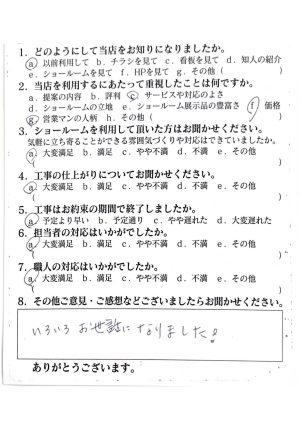 1. どのようにして当店をお知りになりましたか。
a. 以前利用して b. チラシを見て c. 看板を見て d. 知人の紹介
e. ショールームを見て f. HPを見て g. その他 (
2. 当店を利用するにあたって重視したことは何ですか。
a. 提案の内容 b. 評判 c. サービスや対応のよさ
d. ショールームの立地 e. ショールーム展示品の豊富さ f. 価格
g. 営業マンの人柄 h. その他 (
3. ショールームを利用して頂いた方はお聞かせください。
気軽に立ち寄ることができる雰囲気づくりや対応はできていましたか。
a. 大変満足 b. 満足 c. やや不満 d. 不満 e. その他
(
4. 工事の仕上がりについてお聞かせください。
a. 大変満足 b. 満足 c. やや不満 d. 不満 e. その他
(
5. 工事はお約束の期間で終了しましたか。
a. 予定より早い b. 予定通り c. やや遅れた d. 大変遅れた
6. 担当者の対応はいかがでしたか。
a. 大変満足 b. 満足 c. やや不満 d. 不満 e. その他
(
7. 職人の対応はいかがでしたか。
a. 大変満足 b. 満足 c. やや不満 d. 不満 e. その他
(
8. その他ご意見・ご感想などございましたらお聞かせください。
いろいろお世話になりました。
ありがとうございます。